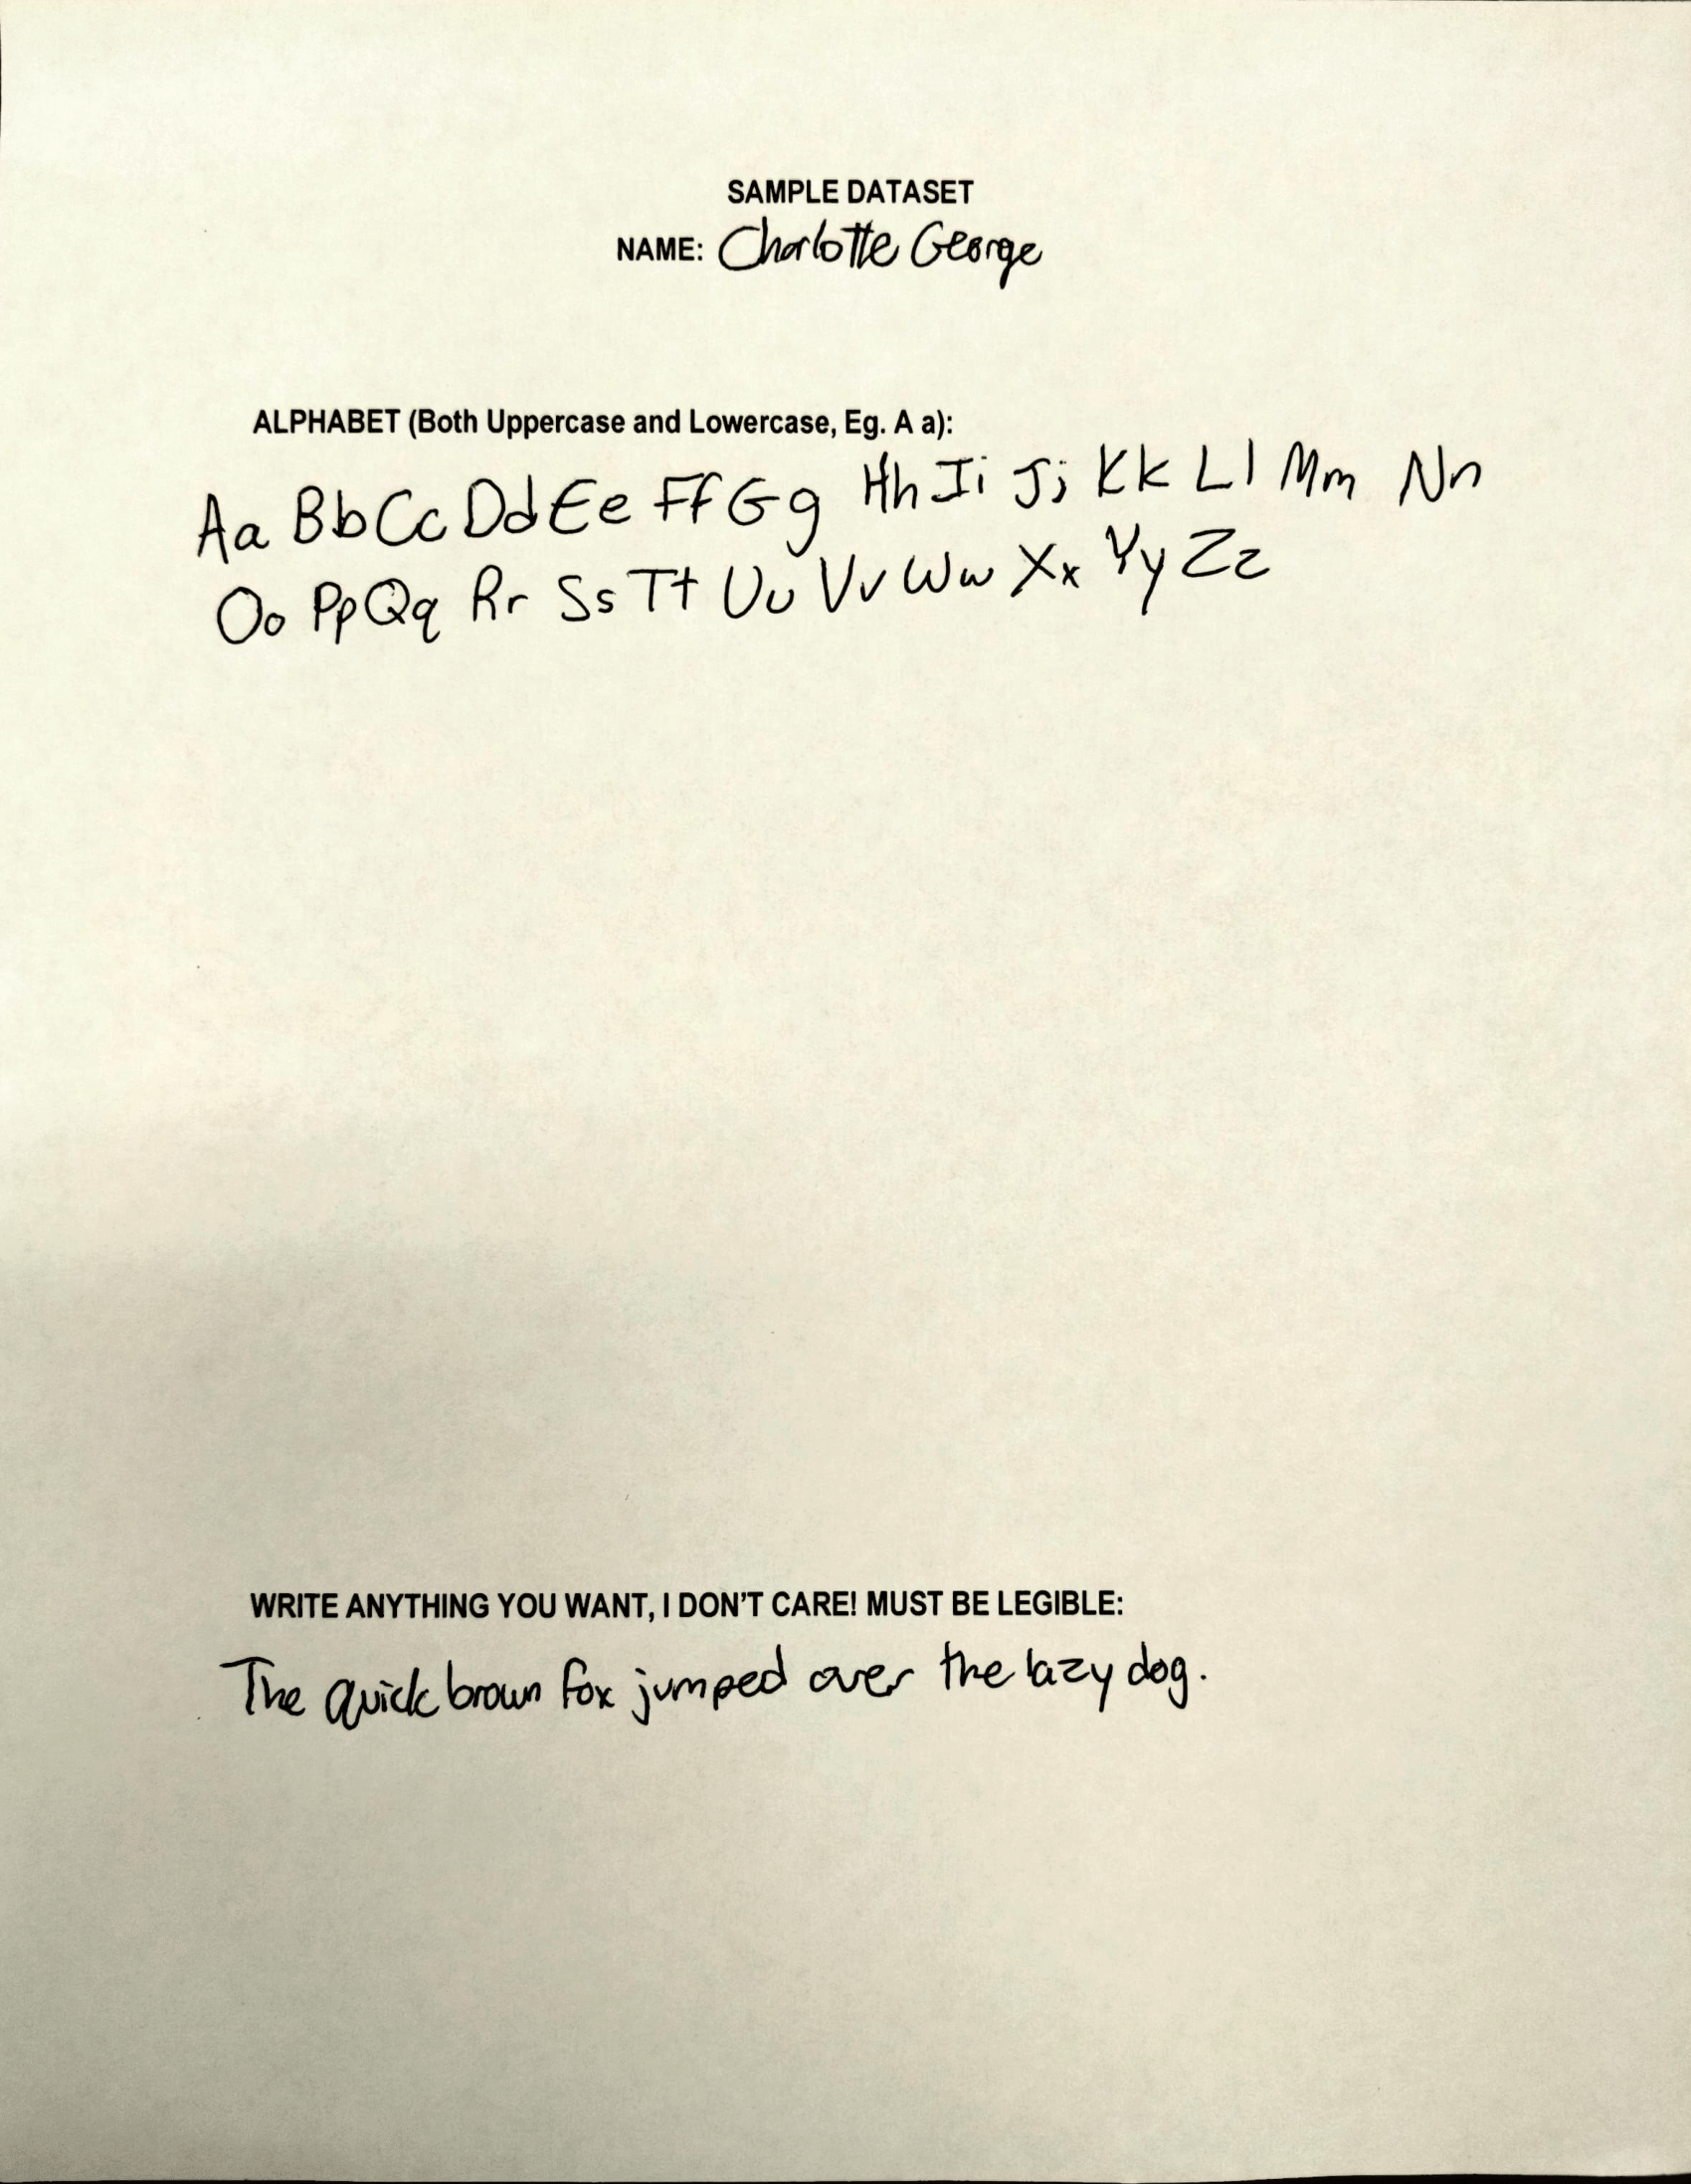 SAMPLE DATASET
NAME: Charlotte George
ALPHABET (Both Uppercase and Lowercase, Eg. A a):
Aa Bb Cc Dd Ee Ff Gg Hh Ii Jj Kk Ll Mm Nn
Oo Pp Qq Rr Ss Tt Uu Vv Ww Xx Yy Zz
WRITE ANYTHING YOU WANT, I DON'T CARE! MUST BE LEGIBLE:
The quick brown fox jumped over the lazy dog.